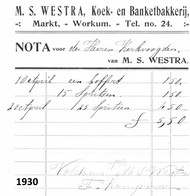 M. S. WESTRA, Koek- en Banketbakkerij,
-: Markt, - Workum. - Tel. no. 24. :-
NOTA voor de Heeren Kerkvoogden
van M. S. WESTRA.
10 April een poffert 1,50
15 Spritsen 1,50
20 April 25 Spritsen
f 5,50
Voldaan
1930